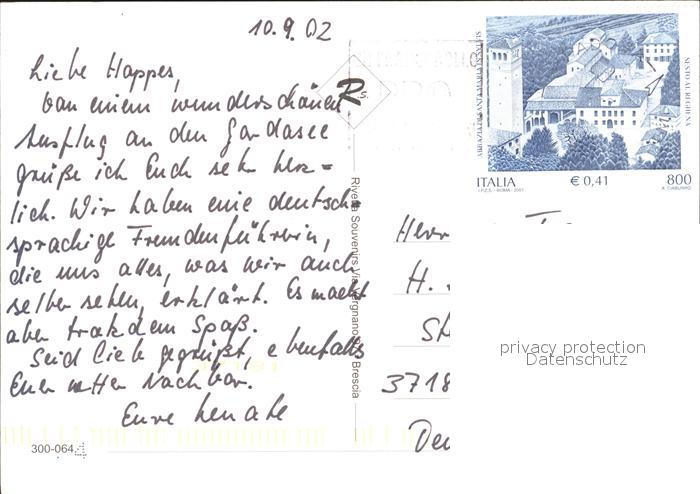 10.9.02
Liebe Happes,
von einem wunderschönen
Ausflug an den Gardasee
grüße ich Euch sehr herz=
lich. Wir haben eine deutsch-
sprachige Fremdenführerin,
die uns alles, was wir auch
selber sehen, erklärt. Es macht
aber trotzdem Spaß.
Seid lieb gegrüßt, ebenfalls
Euer netter Nachbar.
Eure Renate
300-064
R s.
Riviera Souvenirs Via Vergnano Brescia
ABBAZIA DI SANTA MARIA IN SYLVIS
SESTO AL REGHENA
ITALIA € 0,41 800
I.P.Z.S. - ROMA - 2001
Herr
H.
St
3718
Deu
privacy protection
Datenschutz